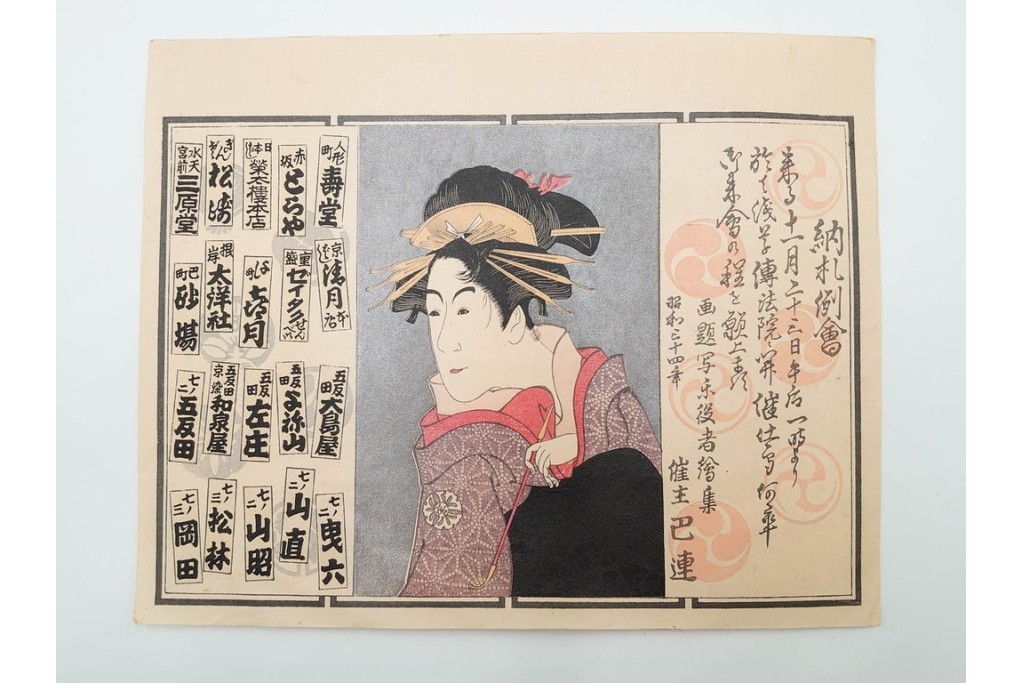 納札例會
来る十一月二十三日午后一時より
於て浅草傳法院に開催仕る間何卒
御来會の程を願上ます
画題 写楽役者繪集
昭和三十四年
催主 巴連
人形町 壽堂
赤坂 とらや
日本ばし 榮太樓本店
ぎんざ 松崎
水天宮前 三原堂
京ばし 清月
重盛 ゼイタクせんべい
よし町 喜月
根岸 太洋社
巴町 砂場
五反田 大鳥屋
五反田
五反田 左庄
五反田 京染 和泉屋
七ノ二 五反田
七ノ二 曳六
七ノ二 山直
七ノ二 山昭
七ノ三 松林
七ノ三 岡田